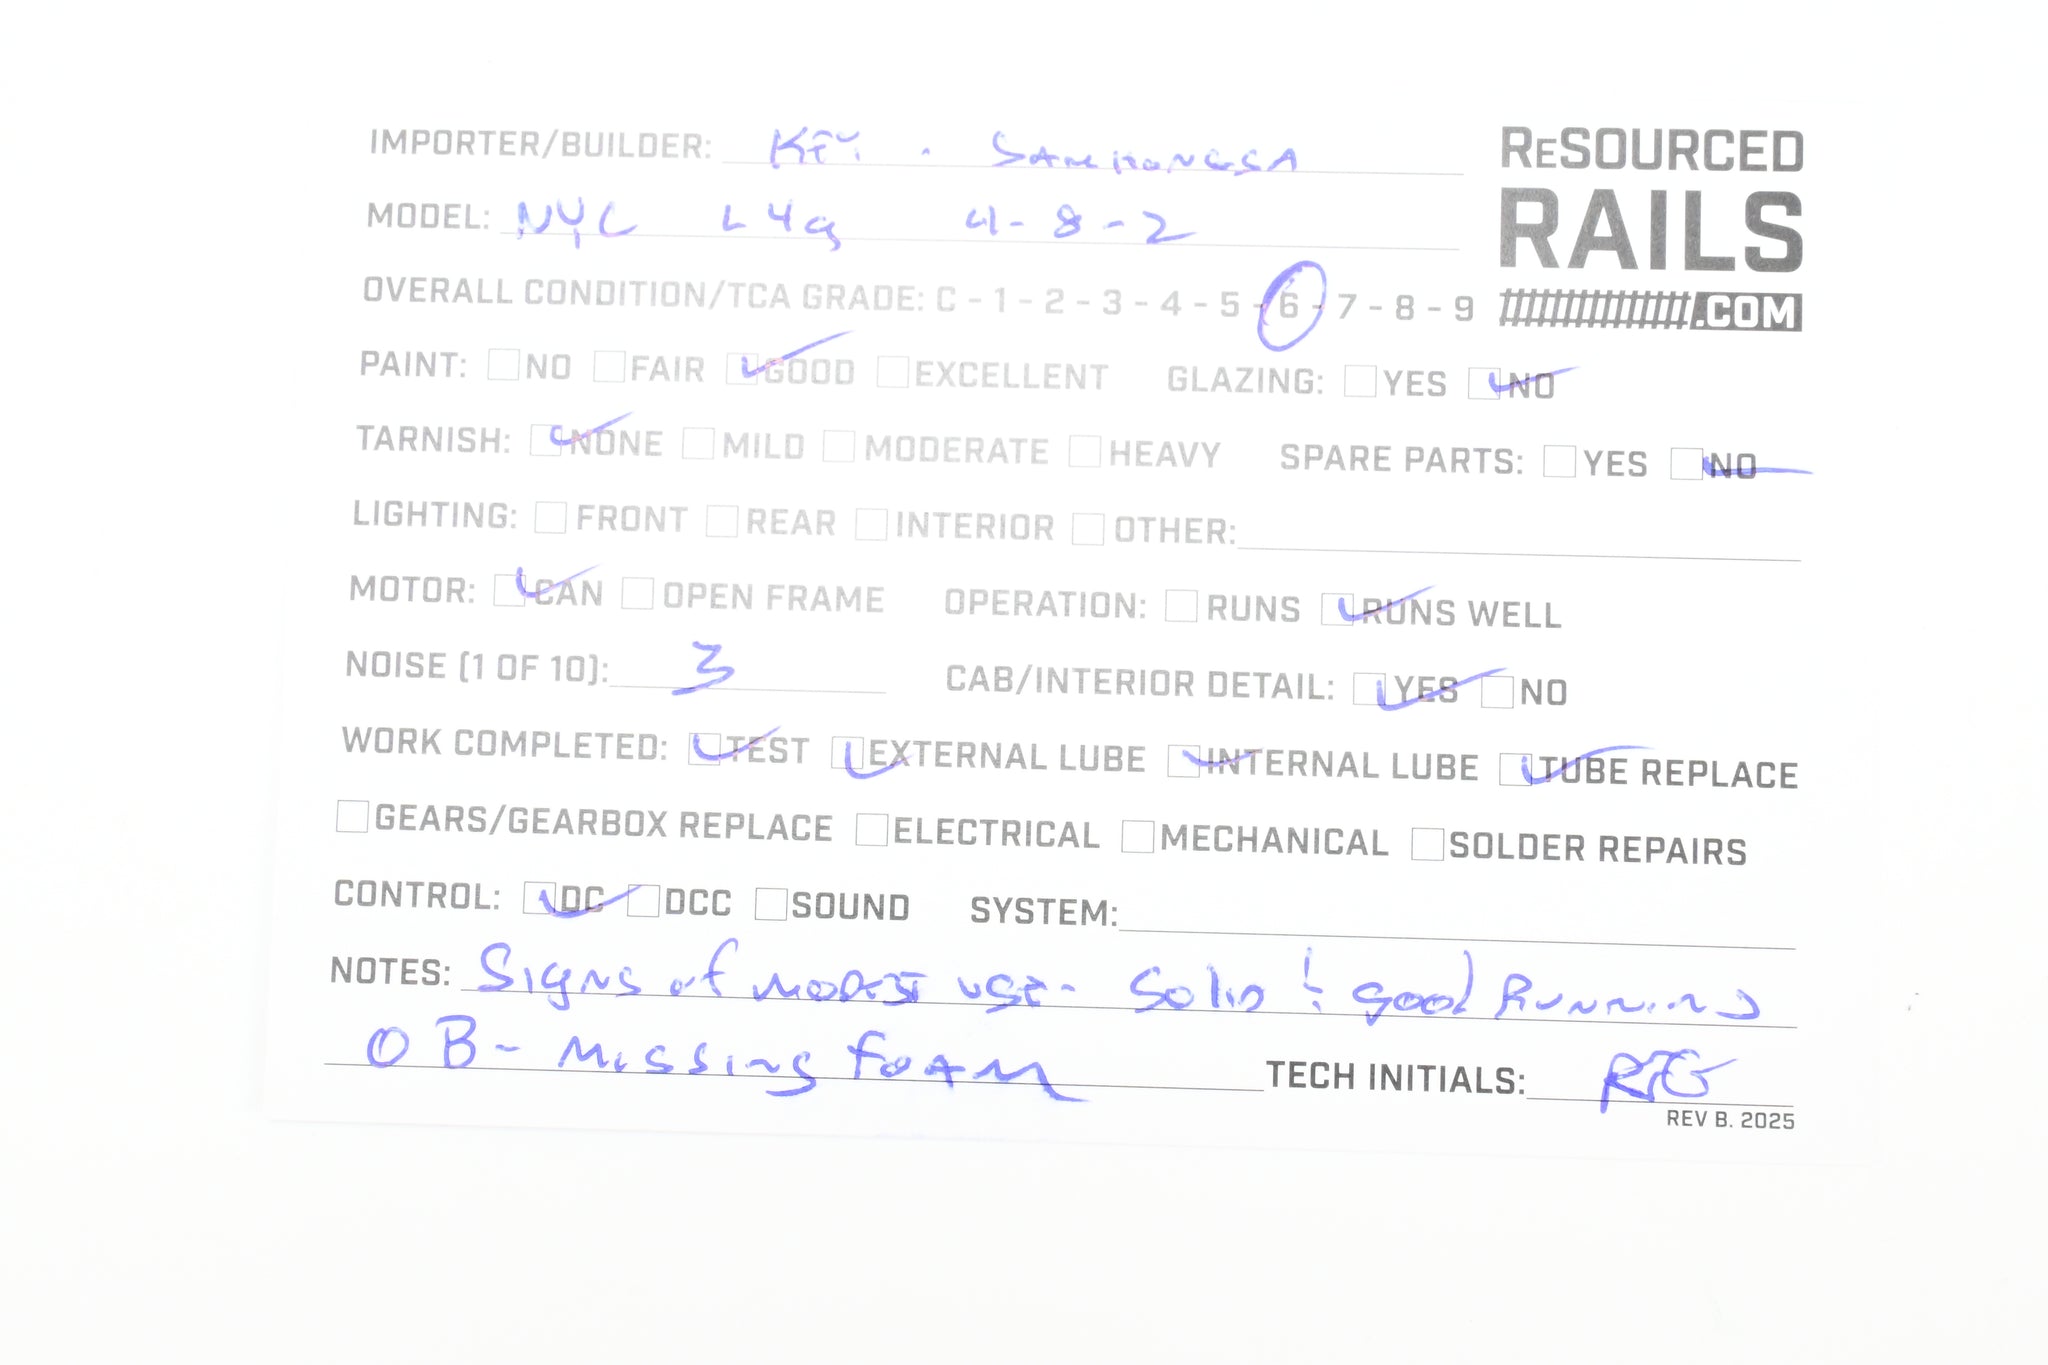 IMPORTER/BUILDER: KEY - SAMHONGSA
RESOURCED
RAILS
.COM
MODEL: NYC L4a 4-8-2
OVERALL CONDITION/TCA GRADE: C - 1 - 2 - 3 - 4 - 5 - 6 - 7 - 8 - 9
PAINT: NO FAIR GOOD EXCELLENT GLAZING: YES NO
TARNISH: NONE MILD MODERATE HEAVY SPARE PARTS: YES NO
LIGHTING: FRONT REAR INTERIOR OTHER:
MOTOR: CAN OPEN FRAME OPERATION: RUNS RUNS WELL
NOISE (1 OF 10): 3 CAB/INTERIOR DETAIL: YES NO
WORK COMPLETED: TEST EXTERNAL LUBE INTERNAL LUBE TUBE REPLACE
GEARS/GEARBOX REPLACE ELECTRICAL MECHANICAL SOLDER REPAIRS
CONTROL: DC DCC SOUND SYSTEM:
NOTES: Signs of MODEST USE - Solid & good Running
OB - Missing FOAM TECH INITIALS:
REV B. 2025